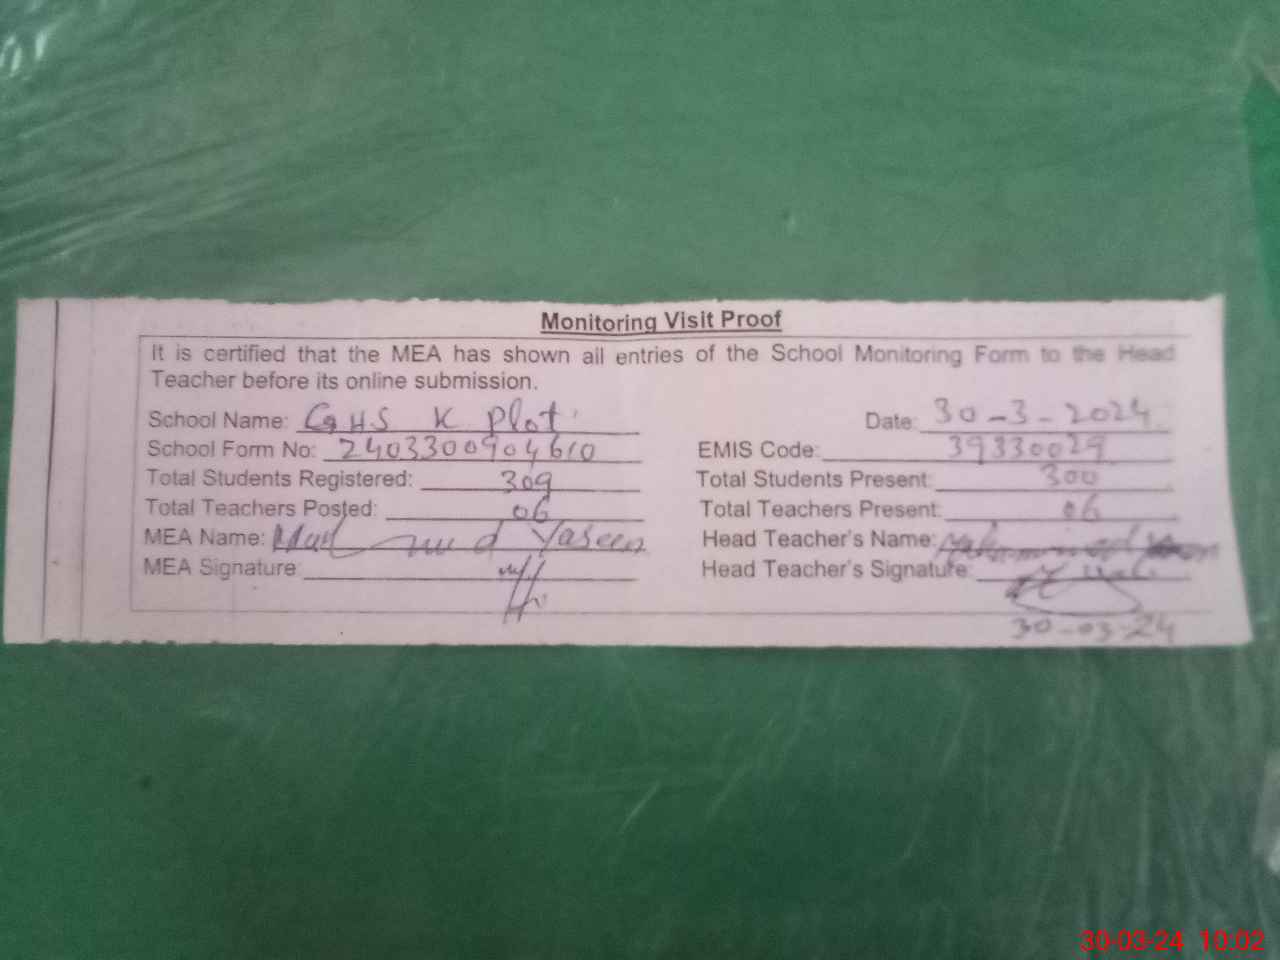 Monitoring Visit Proof
It is certified that the MEA has shown all entries of the School Monitoring Form to the Head
Teacher before its online submission.
School Name: GHS K Plot Date: 30-3-2024
School Form No: 2403300904610 EMIS Code: 39330029
Total Students Registered: 309 Total Students Present: 300
Total Teachers Posted: 06 Total Teachers Present: 06
MEA Name: Yaseen Head Teacher's Name:
MEA Signature: Head Teacher's Signature:
30-03-24
30-03-24 10:02